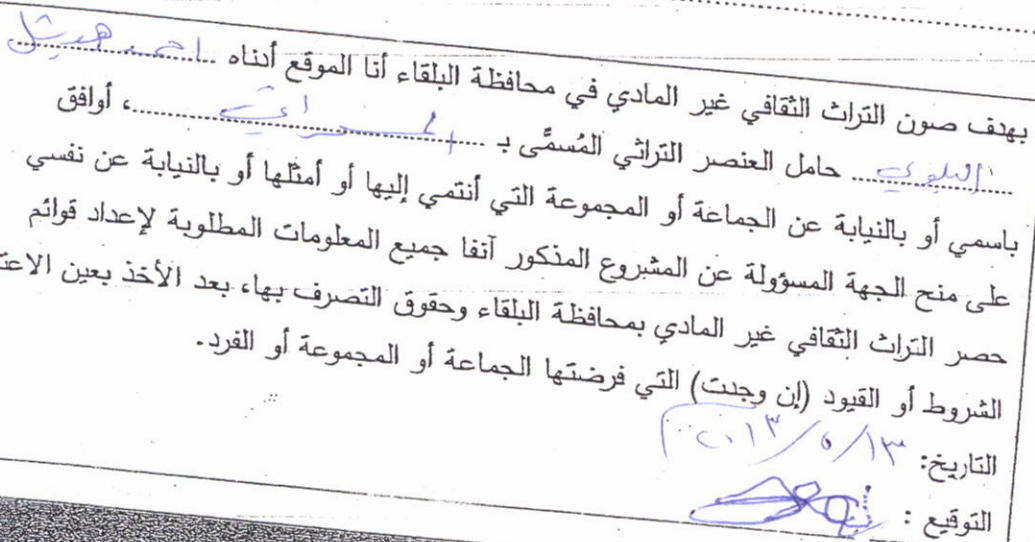 بهدف صون التراث الثقافي غير المادي في محافظة البلقاء أنا الموقع أدناه احمد هديل
البلوي حامل العنصر التراثي المُسمَّى بـ ، أوافق
باسمي أو بالنيابة عن الجماعة أو المجموعة التي أنتمي إليها أو أمثلها أو بالنيابة عن نفسي
على منح الجهة المسؤولة عن المشروع المذكور آنفا جميع المعلومات المطلوبة لإعداد قوائم
حصر التراث الثقافي غير المادي بمحافظة البلقاء وحقوق التصرف بها، بعد الأخذ بعين الاعت
الشروط أو القيود (إن وجدت) التي فرضتها الجماعة أو المجموعة أو الفرد.
التاريخ: ١٣/٥/٢٠١٣
التوقيع :